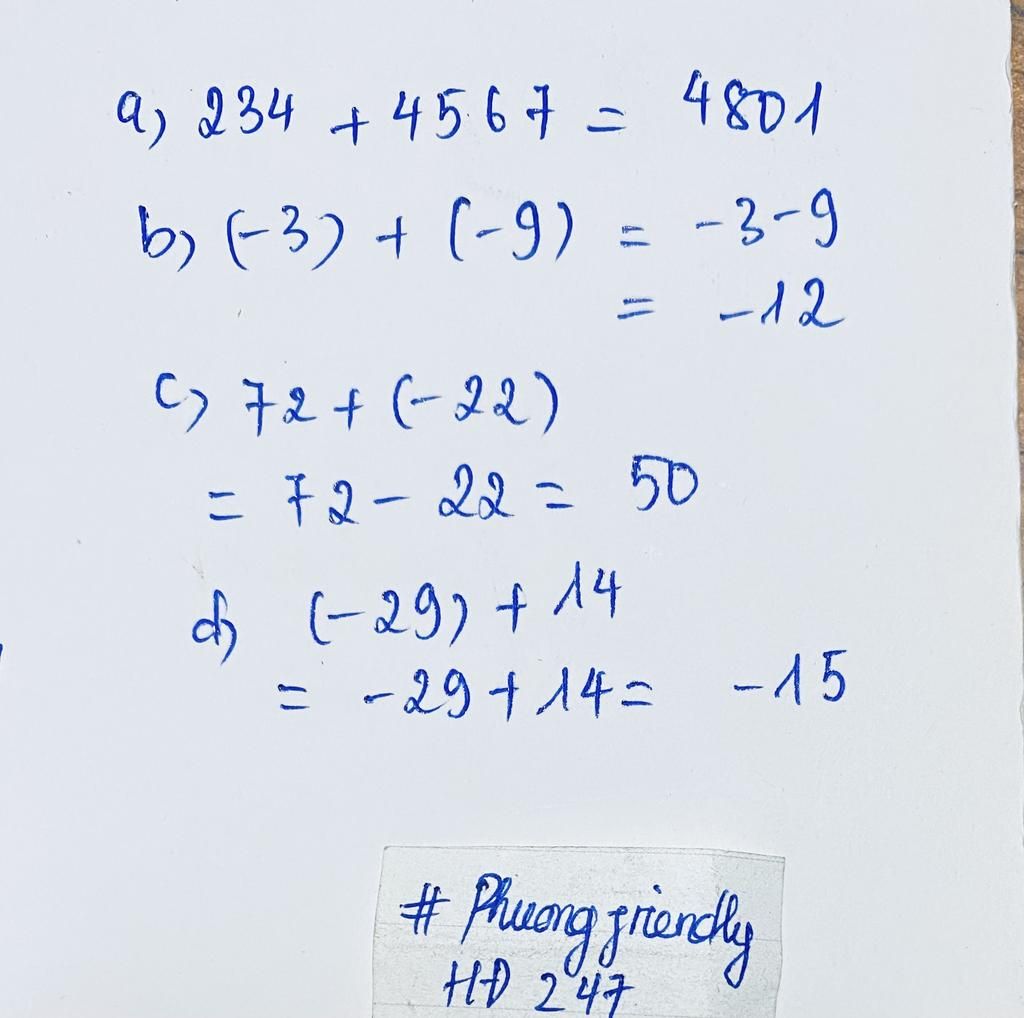 a) 234 + 4567 = 4801
b) (-3) + (-9) = -3-9
= -12
c) 72 + (-22)
= 72 - 22 = 50
d) (-29) + 14
= -29 + 14 = -15
# Phuong friendly
HĐ 247